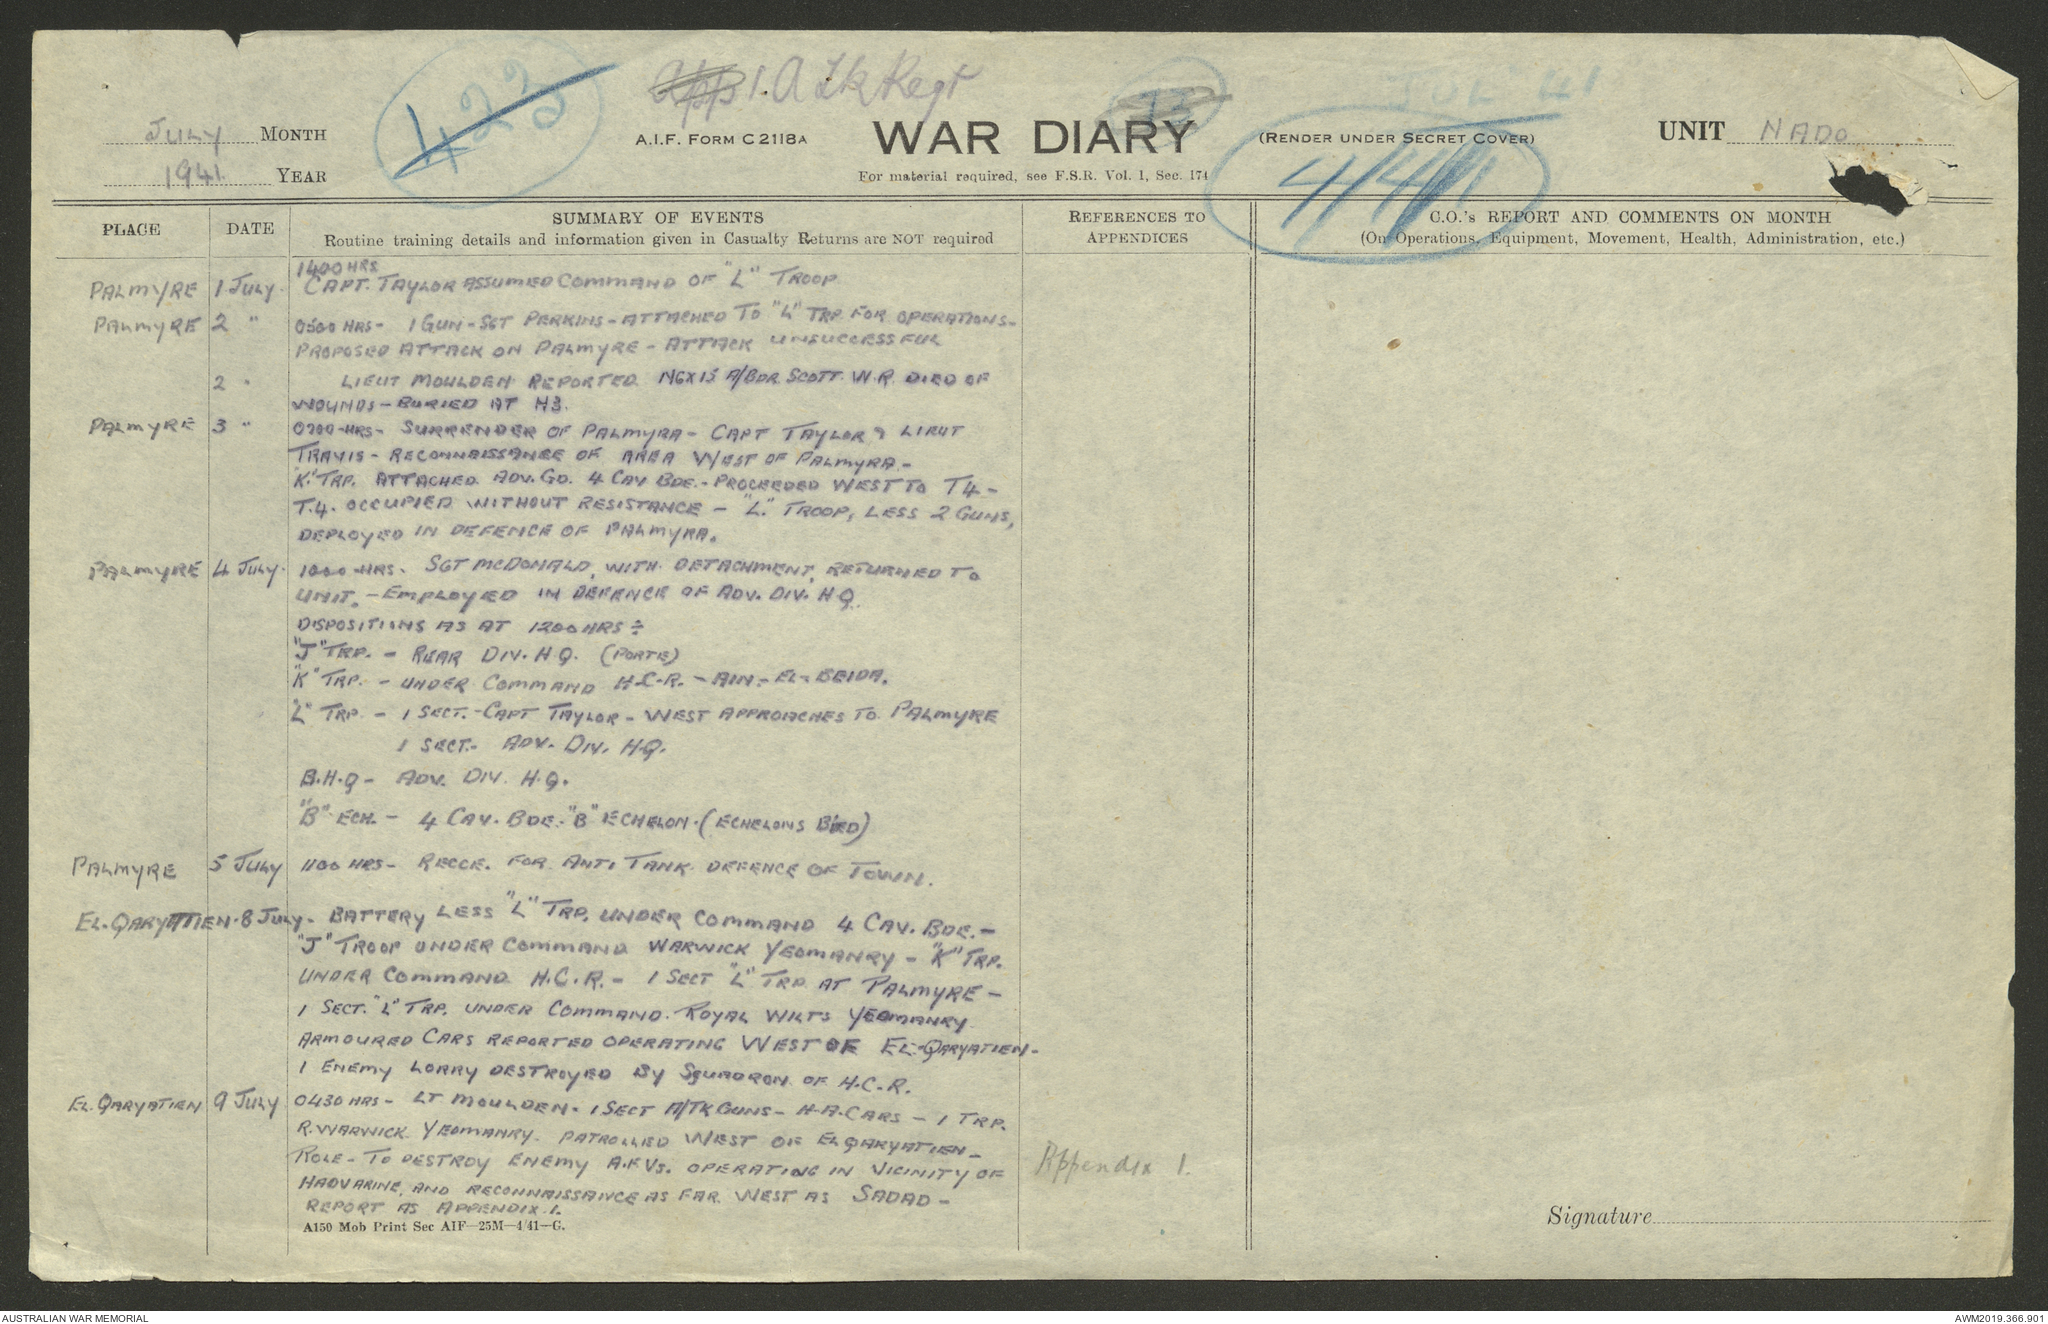 423
1 A Tk Regt
JUL 41
JULY MONTH
1941 YEAR
A.I.F. FORM C2118A
WAR DIARY
(RENDER UNDER SECRET COVER)
For material required, see F.S.R. Vol. 1, Sec. 174
UNIT NADO
PLACE
DATE
SUMMARY OF EVENTS
Routine training details and information given in Casualty Returns are NOT required
REFERENCES TO
APPENDICES
C.O.'s REPORT AND COMMENTS ON MONTH
(On Operations, Equipment, Movement, Health, Administration, etc.)
1400 HRS
PALMYRE 1 JULY. CAPT. TAYLOR ASSUMED COMMAND OF "L" TROOP
PALMYRE 2 " 0500 HRS - 1 GUN - SGT PERKINS - ATTACHED TO "L" TRP. FOR OPERATIONS -
PROPOSED ATTACK ON PALMYRE - ATTACK UNSUCCESSFUL
2 " LIEUT MOULDEN REPORTED NGX15 A/BDR. SCOTT. W.R. DIED OF
WOUNDS - BURIED AT H3.
PALMYRE 3 " 0700 HRS - SURRENDER OF PALMYRA - CAPT TAYLOR & LIEUT
TRAVIS - RECONNAISSANCE OF AREA WEST OF PALMYRA -
"K" TRP. ATTACHED ADV. GD. 4 CAV BDE. - PROCEEDED WEST TO T4 -
T.4. OCCUPIED WITHOUT RESISTANCE - "L" TROOP, LESS 2 GUNS,
DEPLOYED IN DEFENCE OF PALMYRA.
PALMYRE 4 JULY. 1000 HRS - SGT MCDONALD, WITH DETACHMENT, RETURNED TO
UNIT. - EMPLOYED IN DEFENCE OF ADV. DIV. H.Q.
DISPOSITIONS AS AT 1200 HRS :-
"J" TRP. - REAR DIV. H.Q. (PORTE)
"K" TRP. - UNDER COMMAND H.C.R. - AIN-EL-BEIDA.
"L" TRP - 1 SECT. - CAPT TAYLOR - WEST APPROACHES TO PALMYRE
1 SECT. - ADV. DIV. H.Q.
B.H.Q - ADV. DIV. H.Q.
"B" ECH. - 4 CAV. BDE. "B" ECHELON. (ECHELONS B'ED)
PALMYRE 5 JULY 1100 HRS - RECCE. FOR ANTI TANK DEFENCE OF TOWN.
EL. QARYATIEN. 8 JULY - BATTERY LESS "L" TRP. UNDER COMMAND 4 CAV. BDE. -
"J" TROOP UNDER COMMAND WARWICK YEOMANRY - "K" TRP.
UNDER COMMAND H.C.R. - 1 SECT "L" TRP AT PALMYRE -
1 SECT. "L" TRP. UNDER COMMAND ROYAL WILTS YEOMANRY
ARMOURED CARS REPORTED OPERATING WEST OF EL-QARYATIEN -
1 ENEMY LORRY DESTROYED BY SQUADRON OF H.C.R.
EL. QARYATIEN 9 JULY 0430 HRS - LT MOULDEN. 1 SECT A/TK GUNS - H.A. CARS - 1 TRP.
R. WARWICK YEOMANRY. PATROLLED WEST OF EL QARYATIEN -
ROLE - TO DESTROY ENEMY A.F.VS. OPERATING IN VICINITY OF
HAOVARINE, AND RECONNAISSANCE AS FAR WEST AS SADAD -
REPORT AS APPENDIX 1.
Appendix 1.
A150 Mob Print Sec AIF—25M—4/41—G.
Signature
AUSTRALIAN WAR MEMORIAL
AWM2019.366.901